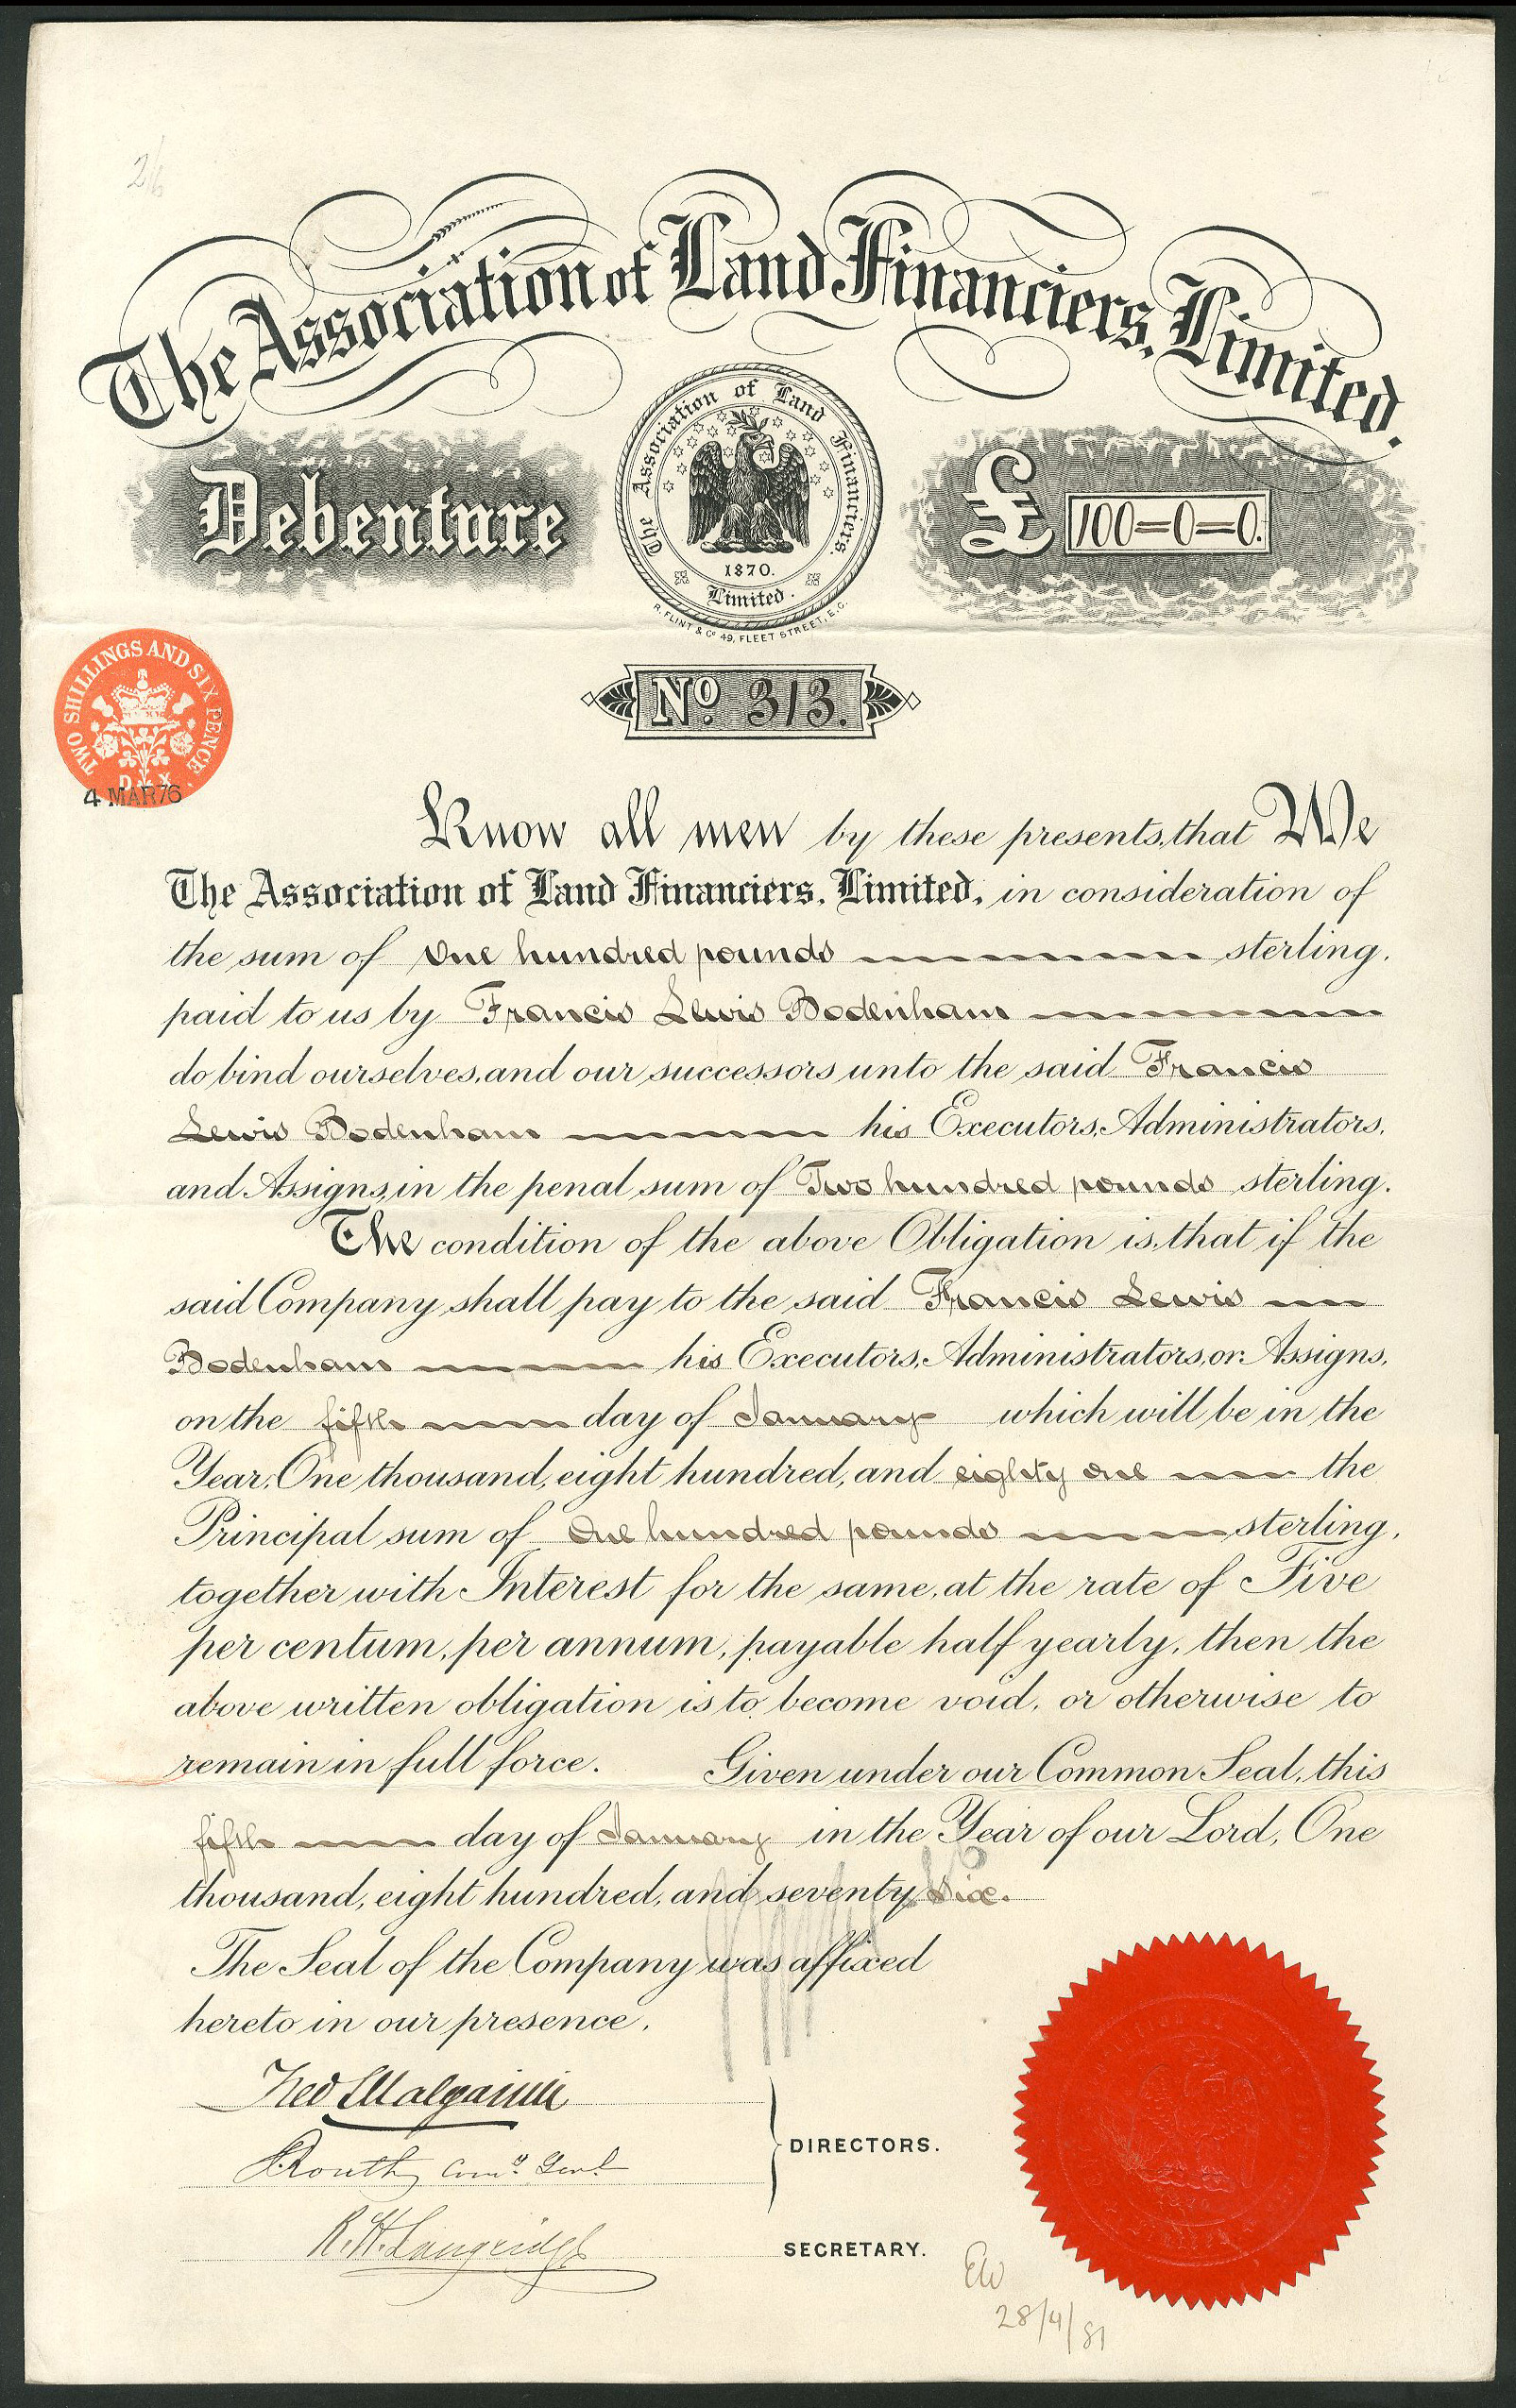 2/6
The Association of Land Financiers, Limited.
Debenture
The Association of Land Financiers.
1870.
Limited.
R. FLINT & Co 49, FLEET STREET, E.C.
£ 100=0=0.
No. 313.
TWO SHILLINGS AND SIX PENCE
D. X
4 MAR 76
Know all men by these presents, that We
The Association of Land Financiers, Limited, in consideration of
the sum of One hundred pounds sterling,
paid to us by Francis Lewis Bodenham
do bind ourselves, and our successors unto the said Francis
Lewis Bodenham his Executors, Administrators,
and Assigns, in the penal sum of Two hundred pounds sterling.
The condition of the above Obligation is, that if the
said Company shall pay to the said Francis Lewis
Bodenham his Executors, Administrators, or Assigns,
on the fifth day of January which will be in the
Year, One thousand, eight hundred, and eighty one the
Principal sum of One hundred pounds sterling,
together with Interest for the same, at the rate of Five
per centum, per annum, payable half yearly, then the
above written obligation is to become void, or otherwise to
remain in full force. Given under our Common Seal, this
fifth day of January in the Year of our Lord, One
thousand, eight hundred, and seventy Six.
The Seal of the Company was affixed
hereto in our presence.
DIRECTORS.
R. H. Langridge
SECRETARY.
EW
28/4/81